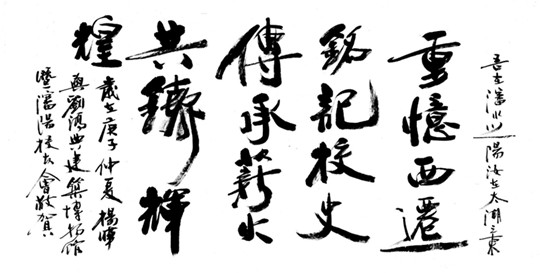 吾在瀋水之陽汝在太湖之東
重憶西遷
銘記校史
傳承薪火
共鑄輝
煌
歲在庚子仲夏楊曄
與劉鴻典建築博物館
暨瀋陽校友會敬賀